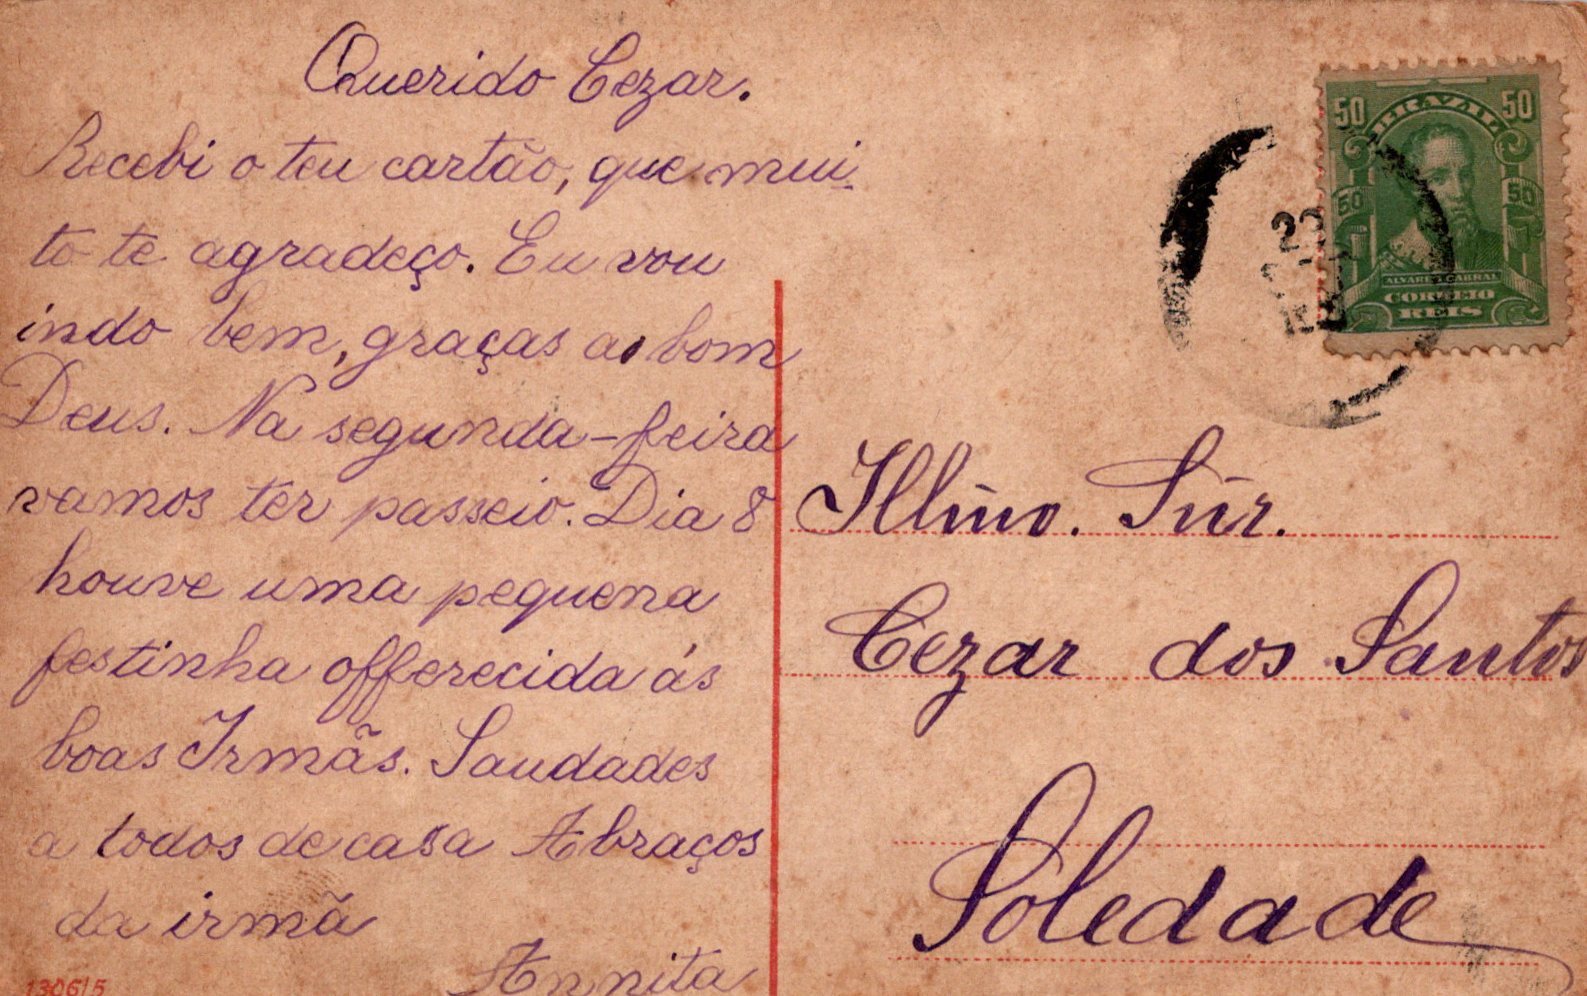 Querido Cezar.
Recebi o teu cartão, que mui
to te agradeço. Eu vou
indo bem, graças ao bom
Deus. Na segunda-feira
vamos ter passeio. Dia 8
houve uma pequena
festinha offerecida ás
boas Irmãs. Saudades
a todos de casa Abraços
da irmã
Annita
13061/5
50 BRAZIL 50
50 50
ALVARES CABRAL
CORREIO
REIS
Illmo. Snr.
Cezar dos Santos
Soledade